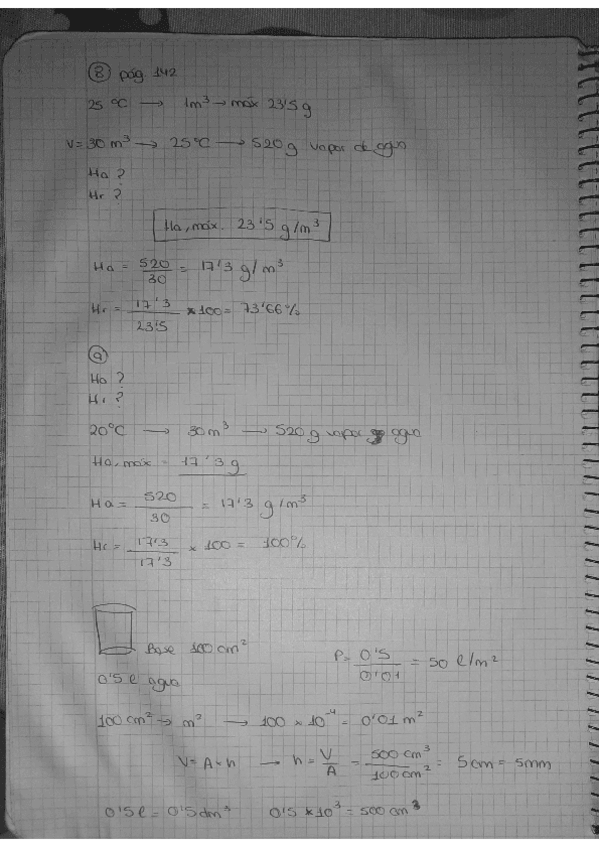 8 pág 142
25 ºC → 1m³ → máx 23'5 g
V = 30 m³ → 25ºC → 520 g vapor de agua
Ha ?
Hr ?
Ha, máx. 23'5 g/m³
Ha = 520/30 = 17'3 g/m³
Hr = 17'3/23'5 * 100 = 73'66%
9
Ha ?
Hr ?
20ºC → 30 m³ → 520 g vapor agua
Ha, máx = 17'3 g
Ha = 520/30 = 17'3 g/m³
Hr = 17'3/17'3 * 100 = 100%
Base 100 cm²
P = 0'5/0'01 = 50 l/m²
0'5 l agua
100 cm² → m² → 100 × 10⁻⁴ = 0'01 m²
V = A × h → h = V/A = 500 cm³/100 cm² = 5cm = 5mm
0'5 l = 0'5 dm³ 0'5 * 10³ = 500 cm³